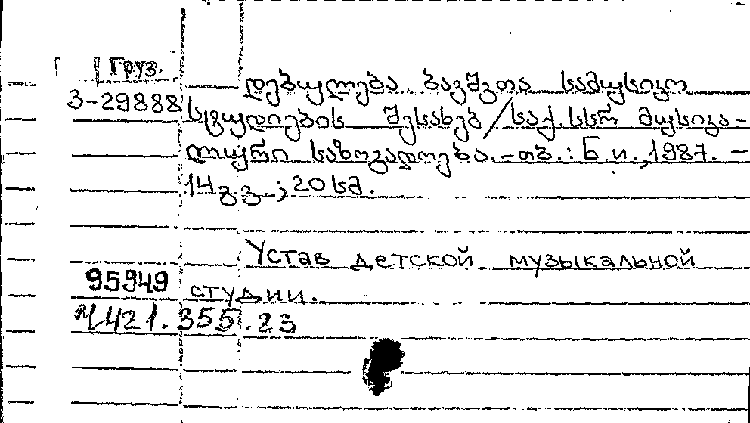 Груз.
დებულება ბავშვთა სამუსიკო
3-29888 სტუდიების შესახებ/საქ.სსრ მუსიკა-
ლური საზოგადოება.-თბ.: Б.и.,1987. –
14გვ.;20სმ.
Устав детской музыкальной
95949 студии.
Щ421.355.23